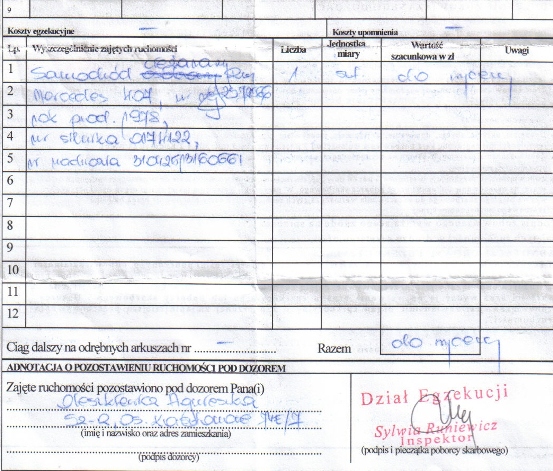 9
Koszty egzekucyjne –
Koszty upomnienia –
Lp. Wyszczególnienie zajętych ruchomości Liczba Jednostka miary Wartość szacunkowa w zł Uwagi
1 Samochód ciężarowy 1 szt. do wyceny
2 Mercedes 407, nr
3 rok prod. 1978,
4 nr silnika 0174122,
5 nr nadwozia
6
7
8
9
10
11
12
Ciąg dalszy na odrębnych arkuszach nr – Razem do wyceny
ADNOTACJA O POZOSTAWIENIU RUCHOMOŚCI POD DOZOREM
Zajęte ruchomości pozostawiono pod dozorem Pana(i)
Agnieszka
(imię i nazwisko oraz adres zamieszkania)
(podpis dozorcy)
Dział Egzekucji
Sylwia Runiewicz
Inspektor
(podpis i pieczątka poborcy skarbowego)